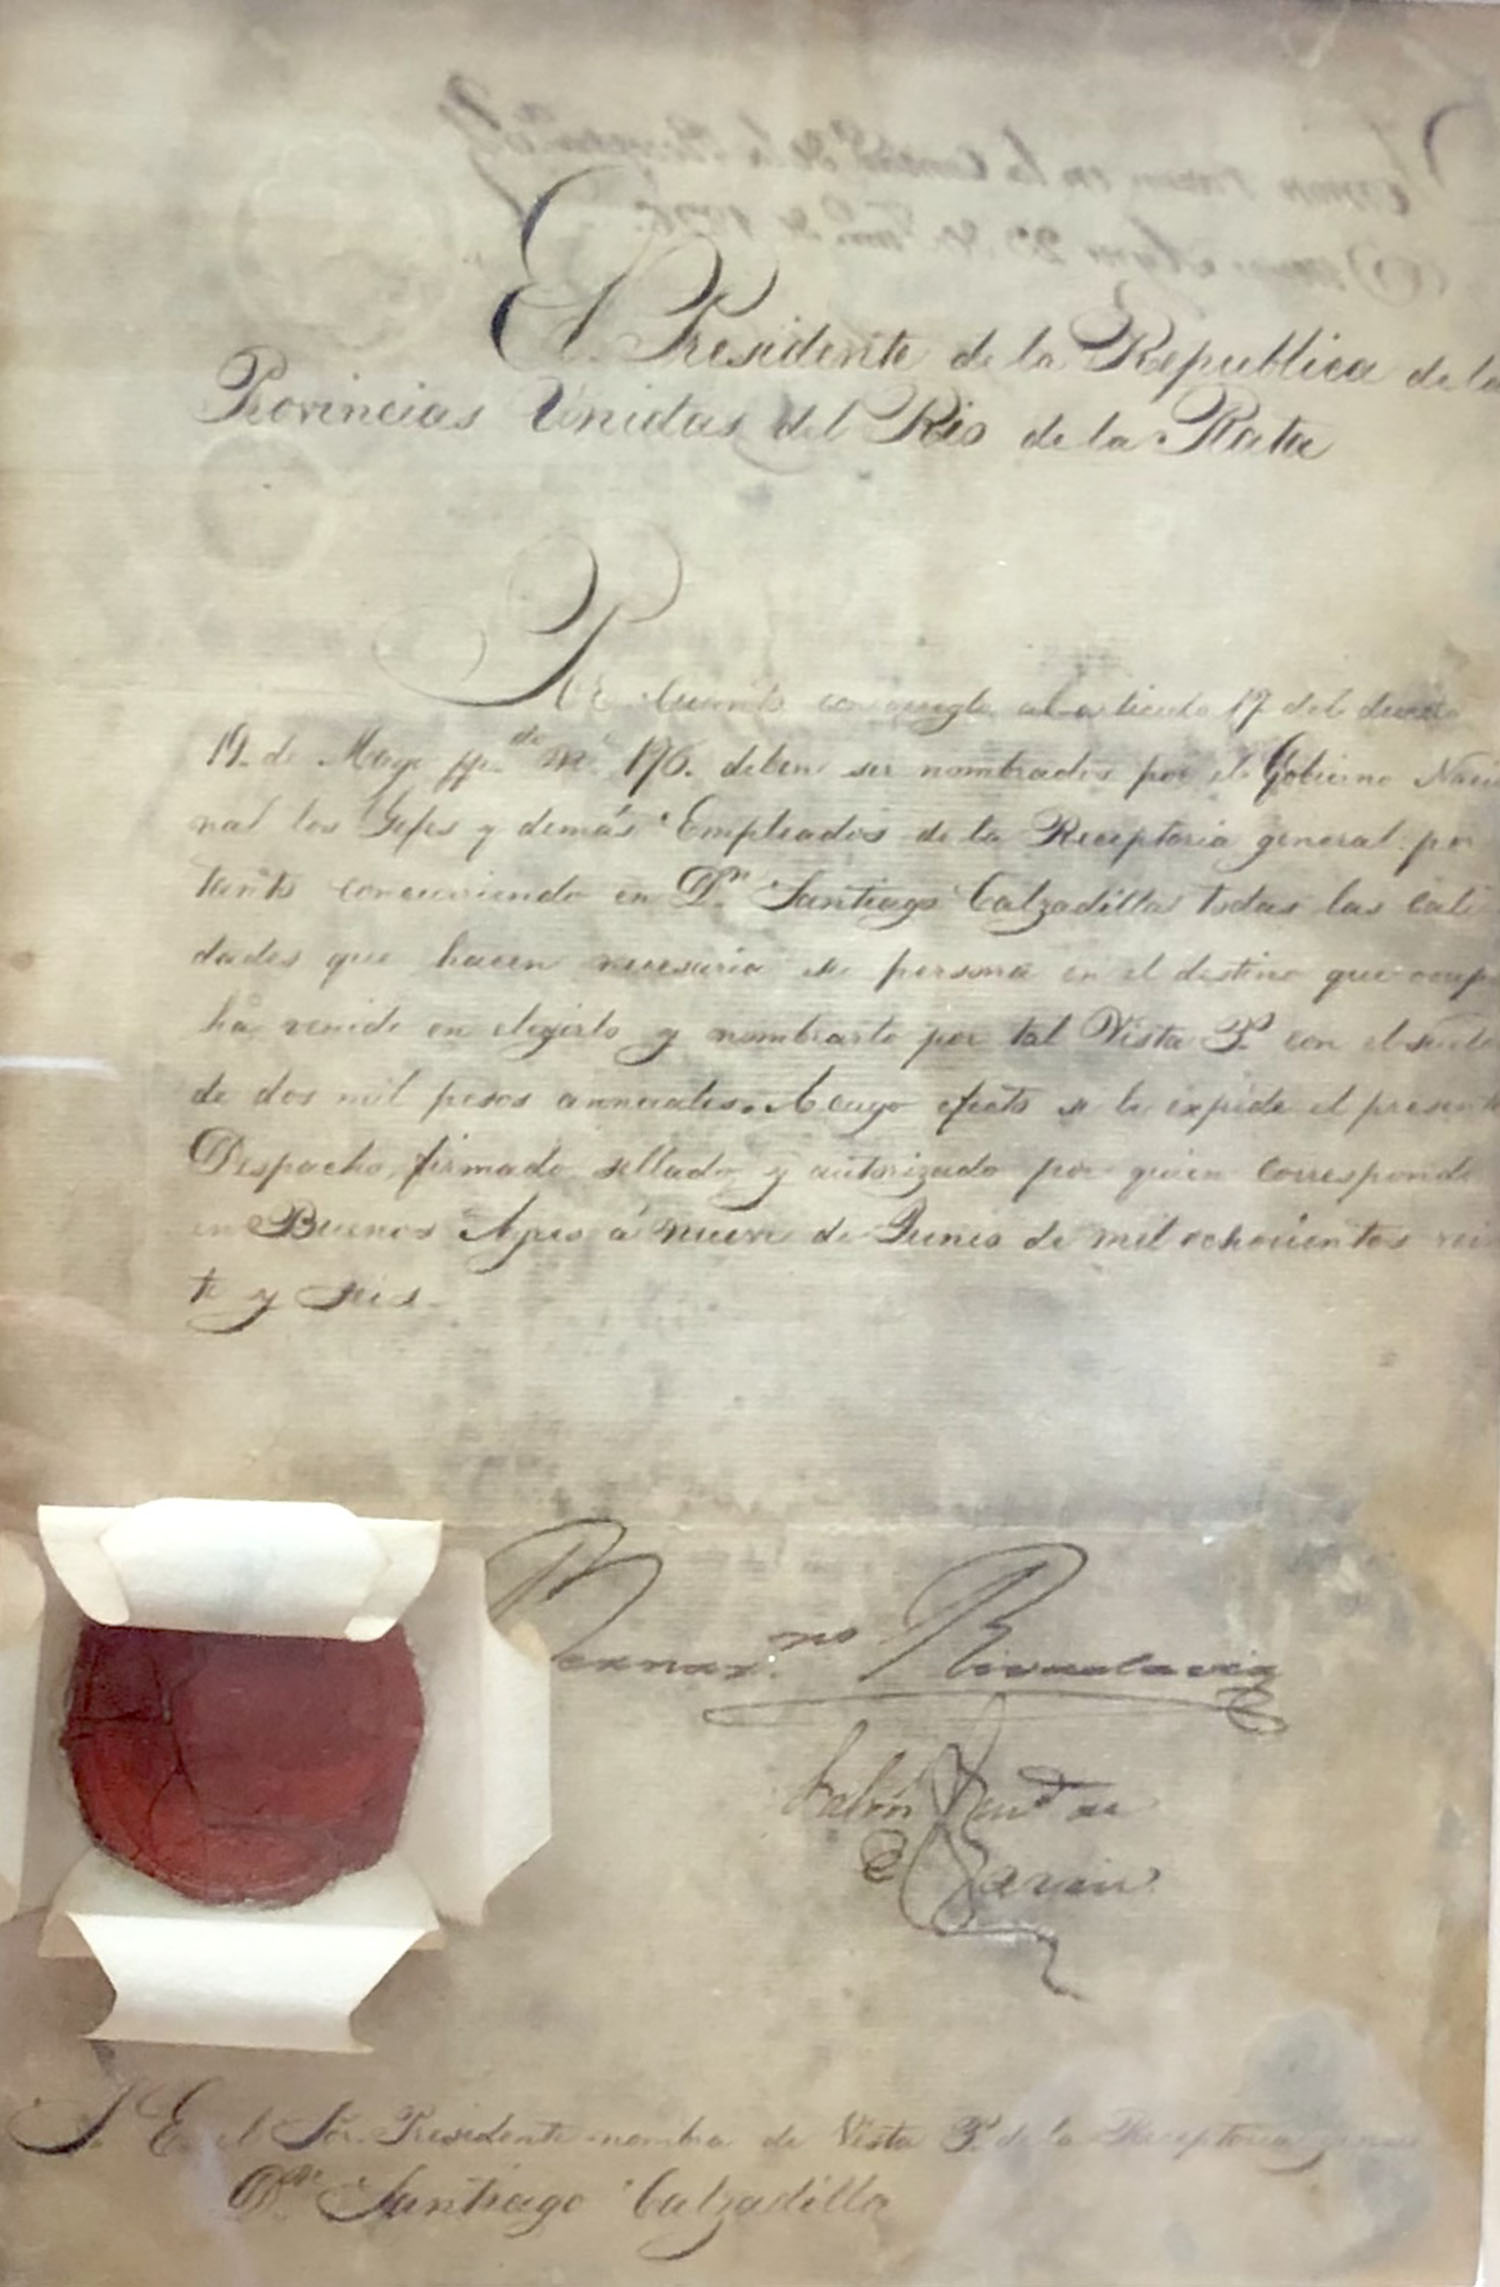 El Presidente de la Republica de la
Provincias Unidas del Rio de la Plata
Por cuanto con arreglo al articulo 17 del decreto
19. de Mayo pp.do n.o 196. deben ser nombrados por el Gobierno Nacio
nal los Gefes y demás Empleados de la Receptoria general: por
tanto concurriendo en Dn. Santiago Calzadilla todas las cali
dades que hacen necesaria su persona en el destino que ocup
há venido en elegirlo y nombrarlo por tal Vista 3.o con el sueldo
de dos mil pesos annuales. A cuyo efecto se le expide el presente
Despacho, firmado, sellado y autorizado por quien corresponde
en Buenos Ayres á nueve de Junio de mil ochocientos vein
te y seis.
Bernar.no Rivadavia
Garcia
S. E. el Sor. Presidente nombra de Vista 3.o de la Receptoria general
Dn. Santiago Calzadilla